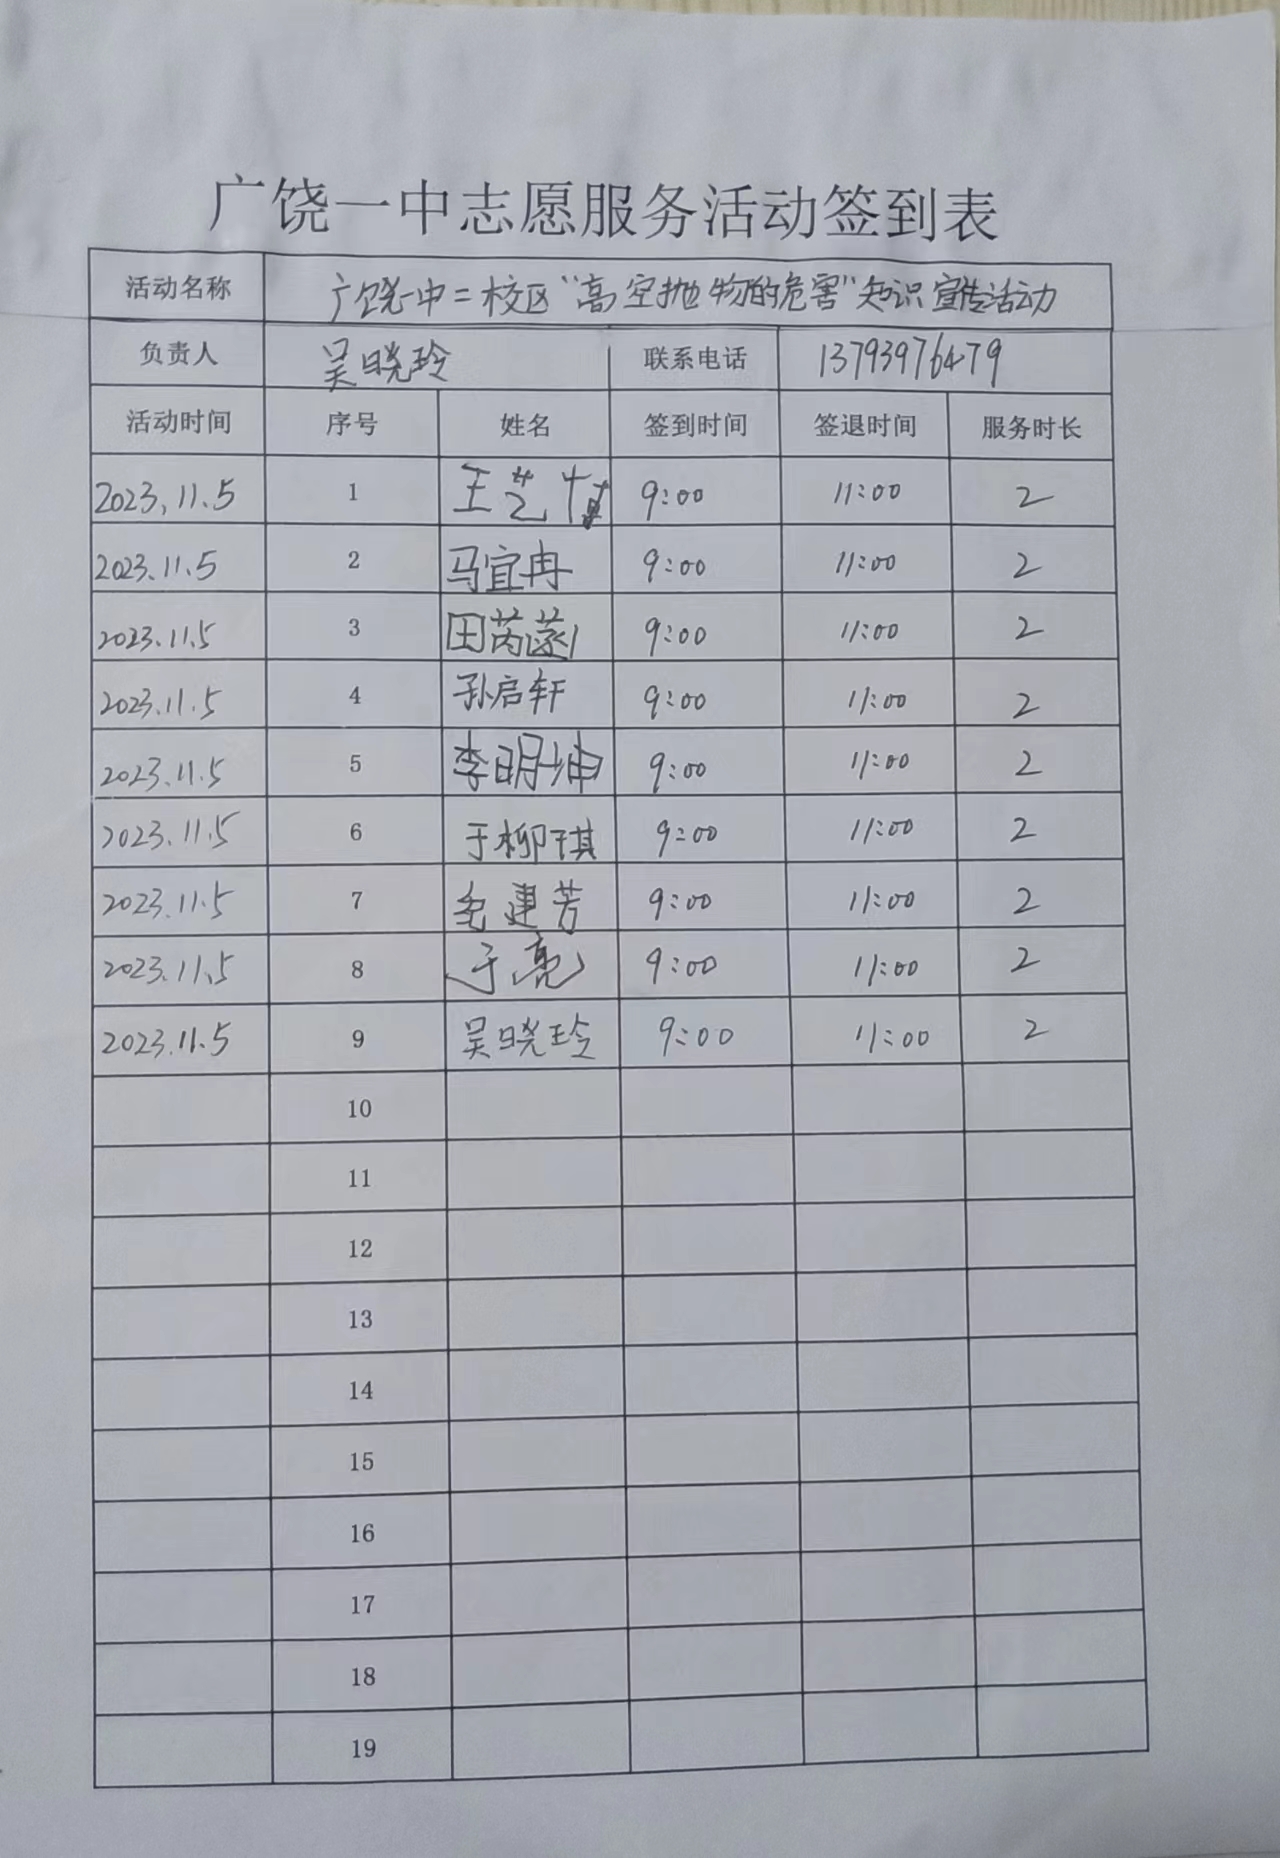 广饶一中志愿服务活动签到表
活动名称 广饶一中二校区“高空抛物的危害”知识宣传活动
负责人 吴晓玲 联系电话 13793976479
活动时间 序号 姓名 签到时间 签退时间 服务时长
2023.11.5 1 王艺 9:00 11:00 2
2023.11.5 2 马宜冉 9:00 11:00 2
2023.11.5 3 田芮 9:00 11:00 2
2023.11.5 4 孙启轩 9:00 11:00 2
2023.11.5 5 李明坤 9:00 11:00 2
2023.11.5 6 于柳琪 9:00 11:00 2
2023.11.5 7 毛建芳 9:00 11:00 2
2023.11.5 8 于亮 9:00 11:00 2
2023.11.5 9 吴晓玲 9:00 11:00 2
10
11
12
13
14
15
16
17
18
19